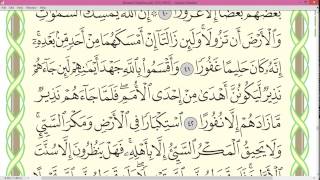 بَعْضُهُم بَعْضًا إِلَّا غُرُورًا ٤٠ ۞ إِنَّ ٱللَّهَ يُمْسِكُ ٱلسَّمَٰوَٰتِ
وَٱلْأَرْضَ أَن تَزُولَا ۚ وَلَئِن زَالَتَآ إِنْ أَمْسَكَهُمَا مِنْ أَحَدٍ مِّنۢ بَعْدِهِۦٓ ۚ
إِنَّهُۥ كَانَ حَلِيمًا غَفُورًا ٤١ وَأَقْسَمُوا۟ بِٱللَّهِ جَهْدَ أَيْمَٰنِهِمْ لَئِن جَآءَهُمْ
نَذِيرٌ لَّيَكُونُنَّ أَهْدَىٰ مِنْ إِحْدَى ٱلْأُمَمِ ۖ فَلَمَّا جَآءَهُمْ نَذِيرٌ
مَّا زَادَهُمْ إِلَّا نُفُورًا ٤٢ ٱسْتِكْبَارًا فِى ٱلْأَرْضِ وَمَكْرَ ٱلسَّيِّئِ ۚ
وَلَا يَحِيقُ ٱلْمَكْرُ ٱلسَّيِّئُ إِلَّا بِأَهْلِهِۦ ۚ فَهَلْ يَنظُرُونَ إِلَّا سُنَّتَ